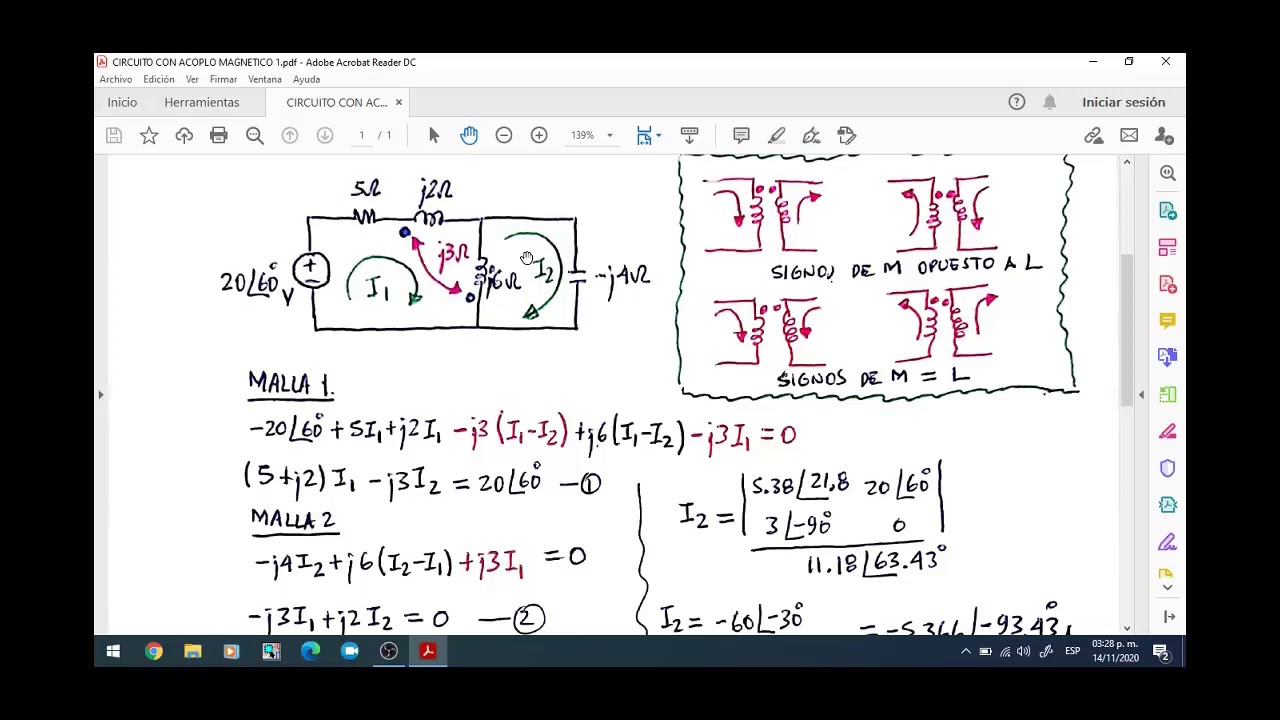 CIRCUITO CON ACOPLO MAGNETICO 1.pdf - Adobe Acrobat Reader DC
Archivo Edición Ver Firmar Ventana Ayuda
Inicio Herramientas CIRCUITO CON AC... × Iniciar sesión
1 / 1 139%
5Ω j2Ω
j3Ω
20∠60° V
+
−
I1
j6Ω
I2
-j4Ω
SIGNOS DE M OPUESTO A L
SIGNOS DE M = L
MALLA 1.
-20∠60° + 5I1 + j2I1 -j3(I1-I2) + j6(I1-I2) -j3I1 = 0
(5+j2)I1 - j3I2 = 20∠60° —①
MALLA 2
-j4I2 + j6(I2-I1) + j3I1 = 0
-j3I1 + j2I2 = 0 —②
I2 = |5.38∠21.8 20∠60°|
|3∠-90° 0|
11.18∠63.43°
I2 = -60∠-30° = -5.366∠-93.43°
ESP
03:28 p. m.
14/11/2020
2